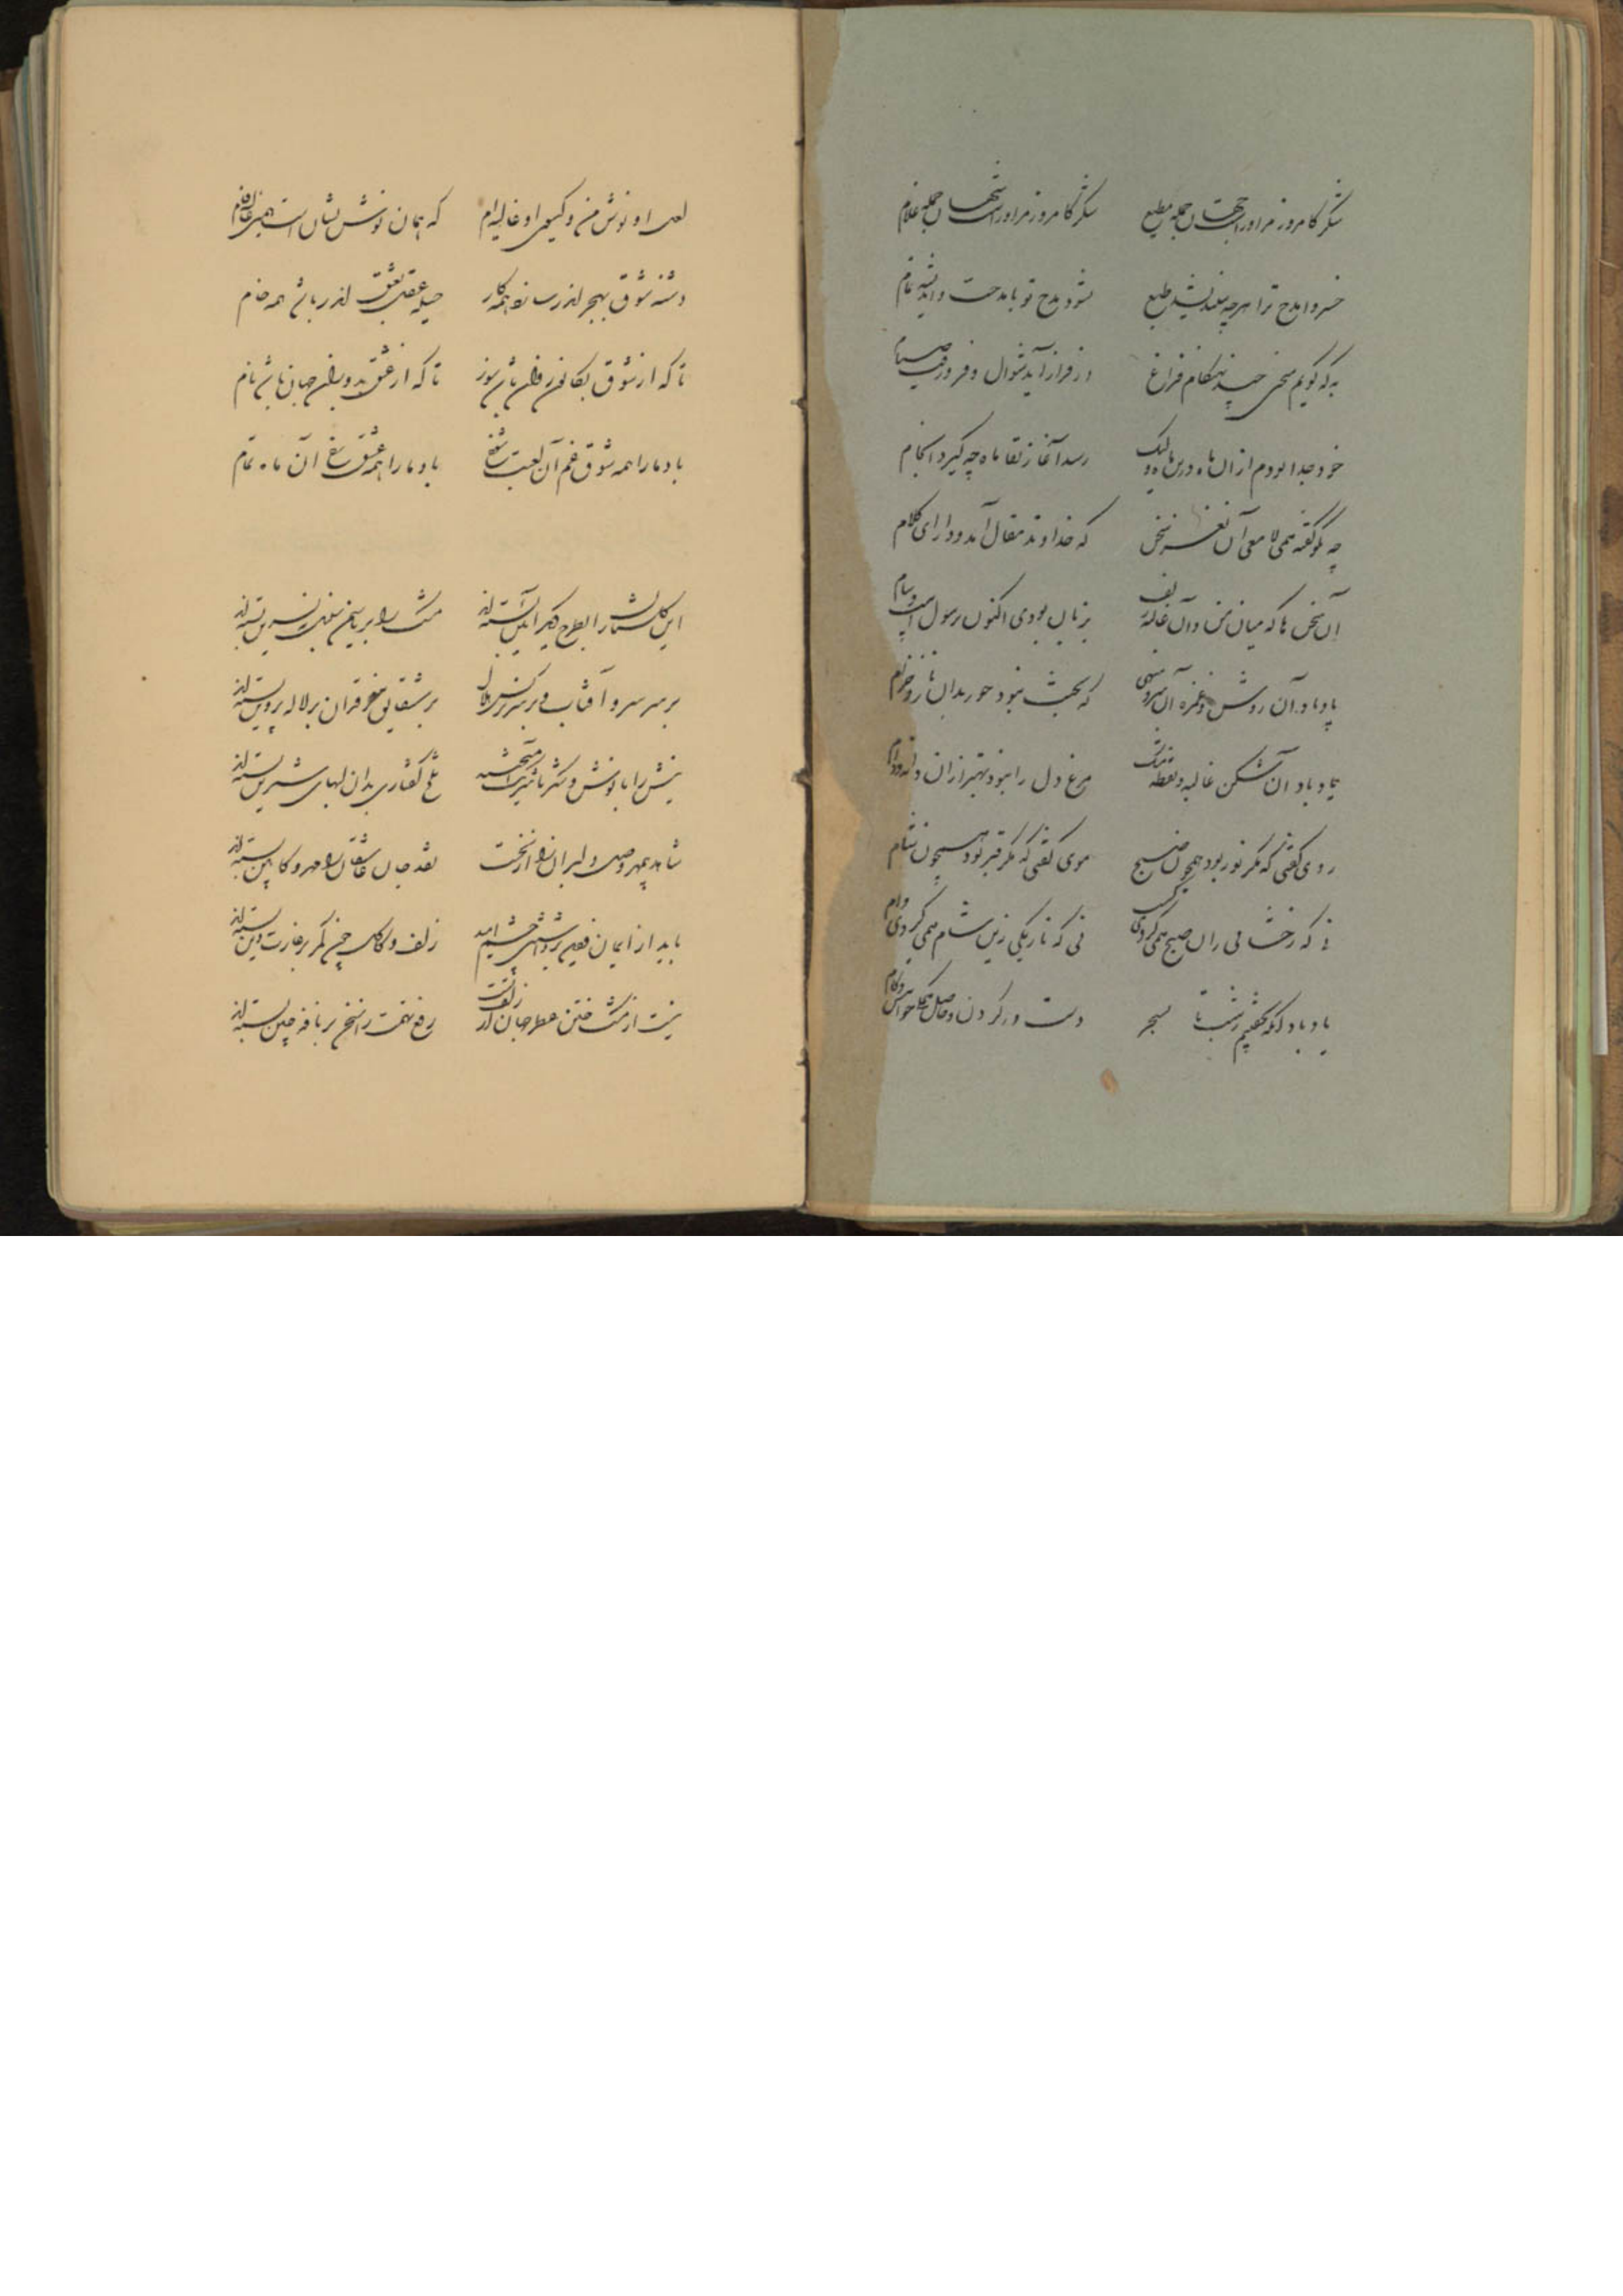 شکر کامروز مر او راست جهان جمله مطیع شکر کامروز مر او راست شهان جمله غلام
خسروا مدح ترا هرچه بیندیشد طبع نشود مدح تو با مدحت و اندیشه تمام
به که گویم سخنی چند بهنگام فراغ در فراز آمد شوال و فرو رفت صیام
خود جدا بودم از آن ماه درین ماه ولیک رسد آغاز لقا ماه چه گیرد انجام
چه نکو گفته همی لامعی آن نغز سخن که خداوند مقال آمد و دارای کلام
آن سخن ها که میان من و آن غالیه زلف بزبان بودی اکنون برسول است و پیام
یاد باد آن روش و غمزه آن سرو سهی که بجنت نبود حور بدان ناز و خرام
یاد باد آن شکن غالیه و نقطه مشک مرغ دل را نبود بهتر از آن دانه و دام
روی گفتی که مگر نور بود همچون صبح موی گفتی که مگر قیر بود همچون شام
نی که رخشانی ازان صبح همی کردی کسب نی که تاریکی زین شام همی کردی وام
یاد باد آنکه بخفتیم ز شب تا بسحر دست در گردن و حاصل همگی خواهش و کام
لعل او نوش من و گیسوی او غالیه ام که همان نوش نشان است همین غالیه فام
دشنه شوق بهجر اندر سازنده همه کار حیله عقل بعشق اندر باشد همه خام
تا که از شوق بکانون روان باشد سوز تا که از عشق بدوران جهان باشد نام
باد ما را همه شوق و غم آن لعبت شوخ باد ما را همه عشق رخ آن ماه تمام
این گلستان را بطرح دیگر آیین بسته اند مشک را بر یاسمن سنبل بنسرین بسته اند
بر سر سرو آفتاب و بر سر نرگس هلال بر شقایق ضیمران بر لاله پروین بسته اند
نیش را با نوش و شکر با شرنگ آمیختند تلخ گفتاری بدان لبهای شیرین بسته اند
شاهد مهر وصل دلبران را از نخست نقد جان عاشقان را مهر و کابین بسته اند
باید از ایمان و دین برداشتن چشم امید زلف و کاکل چون کمر بر غارت دین بسته اند
نیست از مشک ختن عطر جهان از زلف تست رفع تهمت را سخن بر نافه چین بسته اند